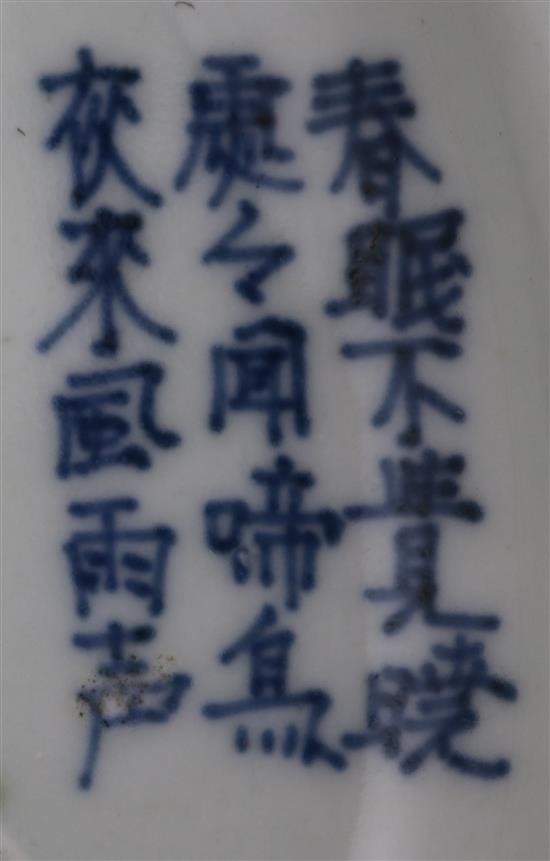 春眠不覺曉
處々聞啼鳥
夜來風雨声